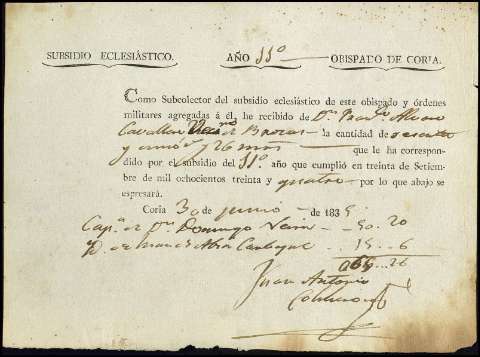 SUBSIDIO ECLESIÁSTICO. AÑO 11º OBISPADO DE CORIA.
Como Subcolector del subsidio eclesiástico de este obispado y órdenes
militares agregadas á él, he recibido de Dn. Franco. Alvaro
de Brozas la cantidad de sesenta
y cinco rs 26 mrs que le ha correspon-
dido por el subsidio del 11º año que cumplió en treinta de Setiem-
bre de mil ochocientos treinta y quatro por lo que abajo se
espresará.
Coria 30 de junio de 1835.
Cap.n de Dn. Domingo 50.. 20
15.. 6
065.. 26
Juan Antonio